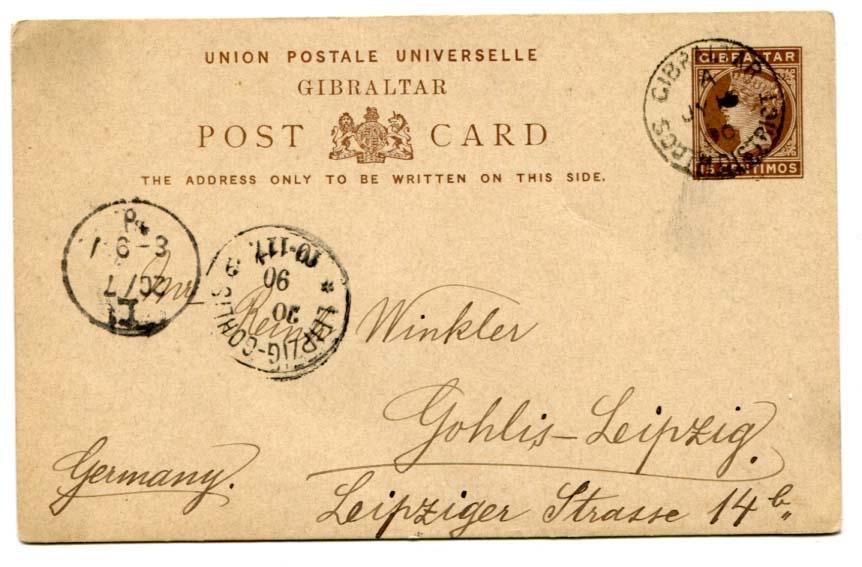 UNION POSTALE UNIVERSELLE
GIBRALTAR
POST CARD
THE ADDRESS ONLY TO BE WRITTEN ON THIS SIDE.
GIBRALTAR
15 CENTIMOS
GIBRALTAR
A
JY
90
LEIPZIG-GOHLIS
20
90
10-11
20/7
8-9
Reinh. Winkler
Gohlis-Leipzig.
Germany.
Leipziger Strasse 14b„